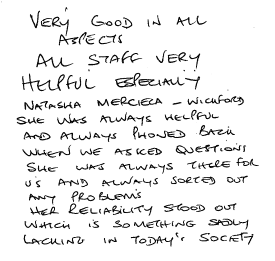 VERY GOOD IN ALL
ASPECTS
ALL STAFF VERY
HELPFUL ESPECIALLY
NATASHA MERCIECA - WICKFORD
SHE WAS ALWAYS HELPFUL
AND ALWAYS PHONED BACK
WHEN WE ASKED QUESTIONS
SHE WAS ALWAYS THERE FOR
US AND ALWAYS SORTED OUT
ANY PROBLEMS
HER RELIABILITY STOOD OUT
WHICH IS SOMETHING SADLY
LACKING IN TODAY'S SOCIETY